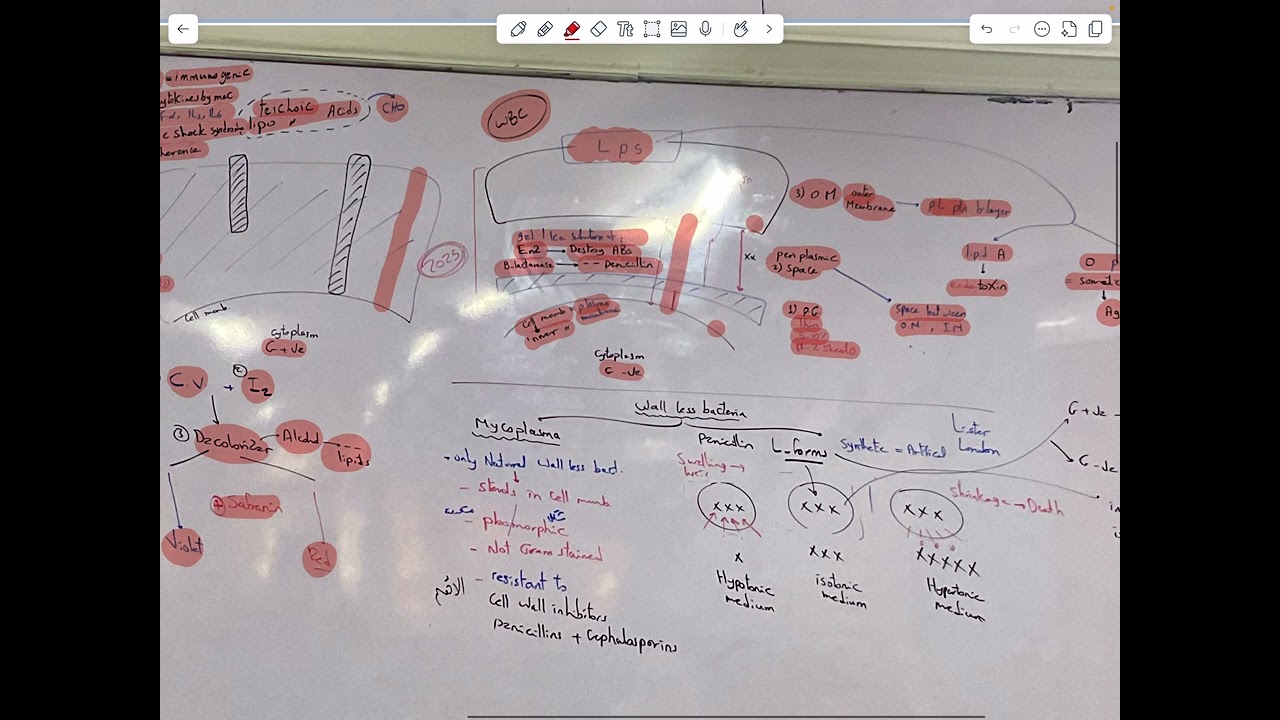 = immunogenic
Teichoic Acids
CHO
c shock syndrome lipo "
herence
WBC
Lps
3) O M outer
Membrane
bilayer
lipid A
endotoxin
O
= somatic
Ag
gel like
Enz → Destroy ABs
B-lactamase → -- penicillin
xx
periplasmic
2) space
space between
O M , I M
1) P.G
Thin
2025
Cell memb
Cell memb = plasma
membrane
"inner"
Cytoplasm
G +ve
Cytoplasm
G -ve
C.V + I2
2
3 Decolorizer
Alcohol
lipids
+ Safranin
Violet
Red
Wall less bacteria
Mycoplasma
only Natural wall less bact.
- sterols in cell memb
- pleomorphic
- Not Gram stained
الاهم
- resistant to
Cell wall inhibitors
Penicillins + Cephalosporins
Penicillin
L-forms
Synthetic = Artificial
Lister
London
G +ve
G -ve
Swelling →
xxx
xxx
xxx
Shrinkage → Death
x
xxx
xxxxx
Hypotonic
medium
isotonic
medium
Hypertonic
medium
Tt